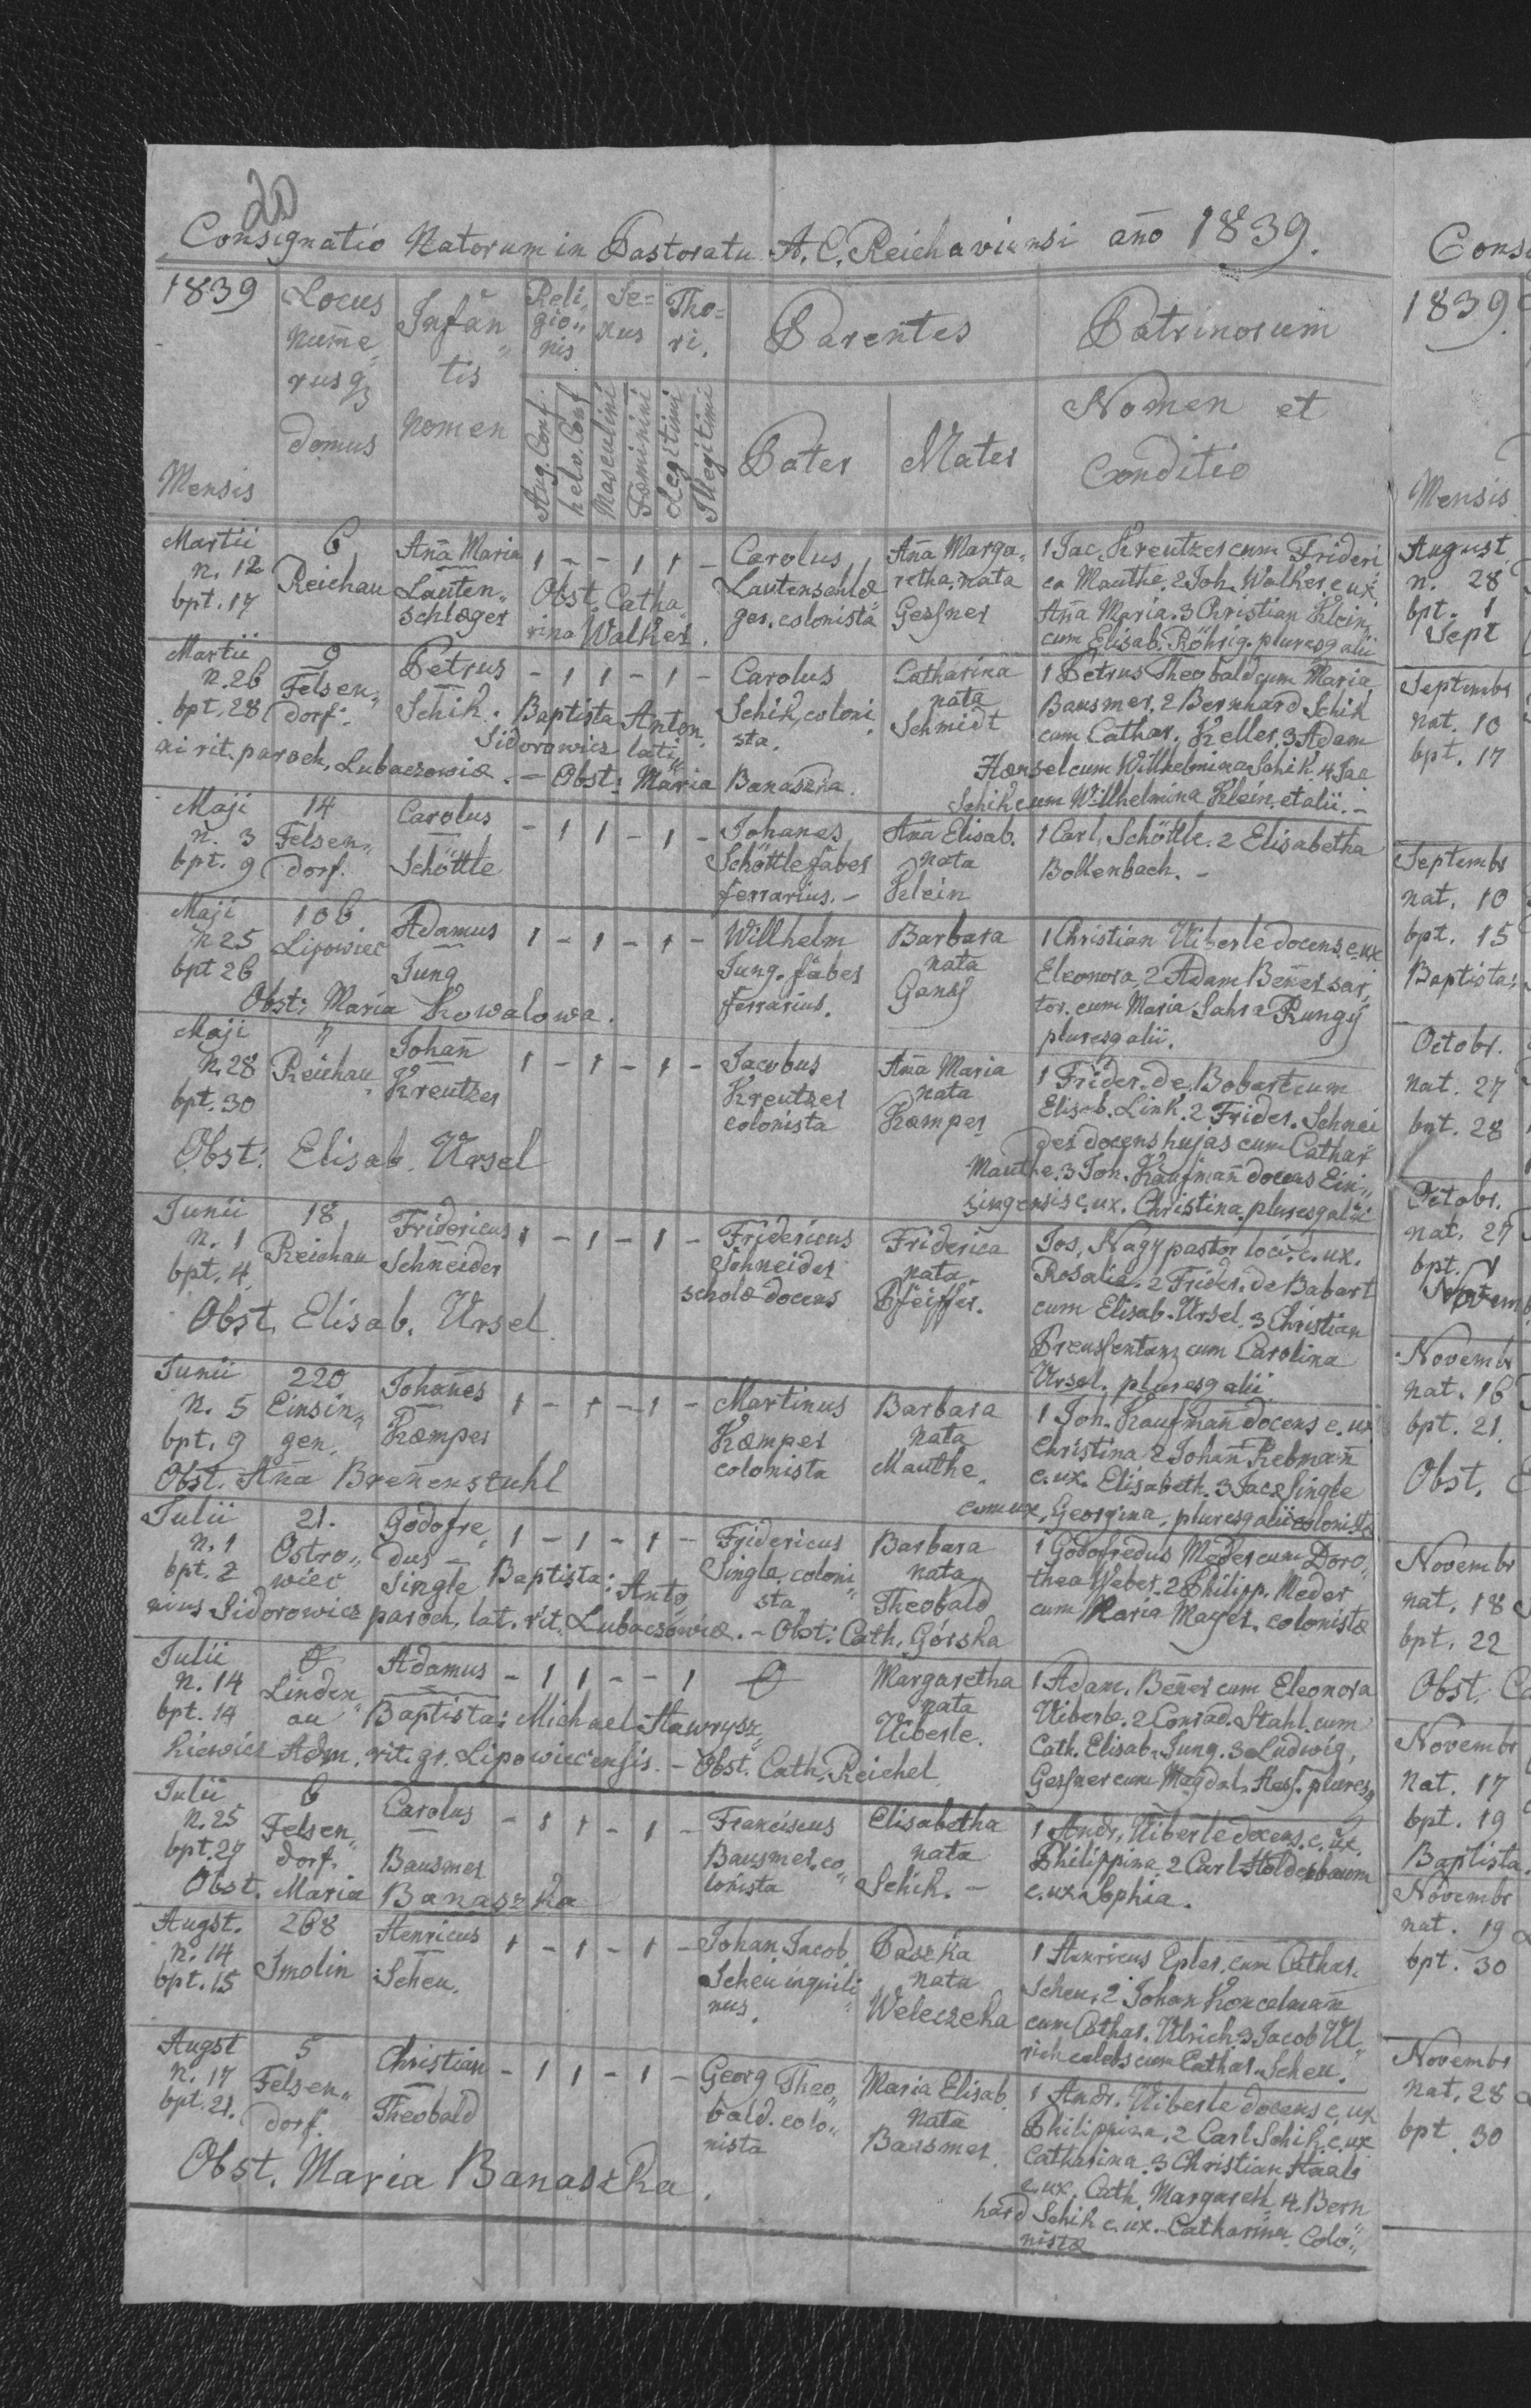 20
Consignatio Natorum in Pastoratu A. C. Reichaviensi año 1839.
1839 Locus Infan Reli„ Se= Tho= Parentes Patrinorum
num̄e„ „tis gio„ xus ri.
rusq3 nis
domus nomen Aug. Conf. helv. Conf Masculini Fœminini Legitimi Illegitimi Pater Mater Nomen et
Mensis Conditio
Martii 6 Aña Maria 1 - - 1 1 - Carolus Aña Marga„ 1 Jac. Kreutzer cum Frideri
n. 12 Reichau Lauten„ Obst. Catha„ Lautenschlæ retha nata ca Mauthe. 2 Joh. Walker c. ux
bpt. 17 schlæger rina Walker. ger. colonista Gesner Aña Maria. 3 Christian Klein
cum Elisab. Röhrig. pluresq alii
Martii 9 Petrus - 1 1 - 1 - Carolus Catharina 1 Petrus Theobald cum Maria
n. 26 Felsen„ Schik. Baptista Anton. Schik, coloni nata Bausmer. 2 Bernhard Schik
bpt. 28 dorf. Sidorowicz lati„ sta. Schmidt cum Cathar. Keller. 3 Adam
ni rit. paroch. Lubaczoviæ. - Obst: Maria Banaszka. Hænsel cum Willhelmina Schik. 4 Jac
Schik cum Willhelmina Klein, et alii. -
Maji 14 Carolus - 1 1 - 1 - Johanes Aña Elisab. 1 Carl Schöttle. 2 Elisabetha
n. 3 Felsen„ Schöttle Schöttle faber nata Bollenbach. -
bpt. 9 dorf. ferrarius. - Klein
Maji 106 Adamus 1 - 1 - 1 - Willhelm Barbara 1 Christian Uiberle docens. c. ux
n 25 Lipowiec Jung Jung. faber nata Eleonora. 2 Adam Beñer sar„
bpt 26 Obst: Maria Kowalowa. ferrarius. Gans tor. cum Maria Sahra Rung
pluresq alii.
Maji 7 Johañ 1 - 1 - 1 - Jacobus Aña Maria 1 Frider. de Bobart cum
n. 28 Reichau Kreutzer Kreutzer nata Elisab. Link. 2 Frider. Schnei
bpt. 30 colonista Kæmper der docens hujas cum Cathar
Obst: Elisab. Ursel Mauthe. 3 Joh. Kaufmañ docens Ein„
singensis c. ux. Christina. pluresq alii
Junii 18 Fridericus 1 - 1 - 1 - Fridericus Friderica Jos. Nagy pastor loci. c. ux.
n. 1 Reichau Schneider Schneider nata Rosalia. 2 Frider. de Babart
bpt. 4 scholæ docens Pfeiffer. cum Elisab. Ursel. 3 Christian
Obst. Elisab. Ursel Preusentanz cum Carolina
Ursel. pluresq alii
Junii 220 Johañes 1 - 1 - 1 - Martinus Barbara 1 Joh. Kaufmañ docens c. ux
n. 5 Einsin„ Kæmper Kæmper nata Christina 2 Johañ Rebmañ
bpt. 9 gen. colonista Mauthe. c. ux. Elisabeth. 3 Jac Single
Obst. Aña Breñenstuhl cum ux, Georgina, pluresq alii colonistæ
Julii 21. Godofre„ 1 - 1 - 1 - Fridericus Barbara 1 Godofredus Meder cum Doro„
n. 1 Ostro„ dus - Single coloni„ nata thea Weber. 2 Philipp. Meder
bpt. 2 wiec Single Baptista: Anto„ sta Theobald cum Maria Mayer. colonistæ
nius Sidorowicz paroch. lat. rit. Lubaczoviæ. - Obst: Cath. Górska
Julii Lindn„ Adamus - 1 1 - - 1 Margaretha 1 Adam. Beñer cum Eleonora
n. 14 nata Uiberle. 2 Conrad. Stahl cum
bpt. 14 au Baptista: Michael Hawrysz„ Uiberle. Cath. Elisab. Jung. 3 Ludwig,
kiewicz Adm. rit. gr. Lipowiecensis. - Obst. Cath. Reichel Gesner cum Magdal. Hess. pluresq
Julii 6 Carolus - 1 1 - 1 - Franciscus Elisabetha 1 Andr. Uiberle docens. c. ux.
n. 25 Felsen„ Bausmer Bausmer. co„ nata Philippina. 2 Carl Holderbaum
bpt. 29 dorf. lonista Schik. - c. ux. Sophia.
Obst. Maria Banaszka
Augst. 268 Henricus 1 - 1 - 1 - Johan Jacob Paszka 1 Henricus Epler. cum Cathar.
n. 14 Smolin Scheu. Scheu inquili„ nata Scheu. 2 Johan Koncelmañ
bpt. 15 nus. Weleczcha cum Cathar. Ulrich. 3 Jacob Ul„
rich celebs cum Cathar. Scheu.
Augst 5 Christian - 1 1 - 1 - Georg Theo„ Maria Elisab. 1 Andr. Uiberle docens c. ux
n. 17 Felsen„ Theobald bald. colo„ nata Philippina. 2 Carl Schik. c. ux
bpt. 21. dorf. nista Bausmer. Catharina. 3 Christian Haab
Obst. Maria Banaszka. c. ux. Cath. Margareth. 4. Bern
hard Schik c. ux. Catharina. Colo„
nistæ
Cons
1839
Mensis
August
n. 28
bpt. 1
Sept
Septembr
nat. 10
bpt. 17
Septembr
nat. 10
bpt. 15
Baptista:
Octobr.
nat. 27
bpt. 28
Octobr.
nat. 27
bpt. 1
Novemb
Novembr
nat. 16
bpt. 21.
Obst.
Novembr
nat. 18
bpt. 22
Obst. Ca
Novembr
nat. 17
bpt. 19
Baptista.
Novembr
nat. 19
bpt. 30
Novembr
nat. 28
bpt. 30